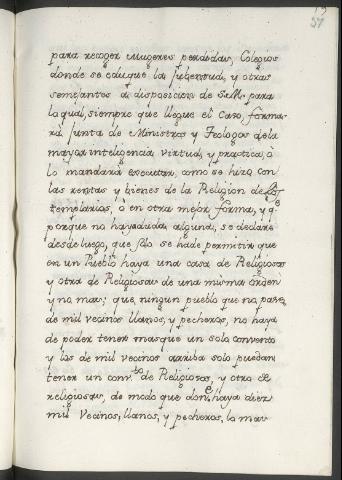 57
para recoger mugeres perdidas, Colegios
donde se eduque la jubentud, y otras
semejantes à disposicion de S.M. para
lo qual, siempre que llegue el Caso, forma-
rá junta de Ministros y Teologos dela
mayor inteligencia virtud, y practica, ò
lo mandará executar, como se hizo con
las rentas y bienes de la Religion de los
templarios, ò en otra mejor forma, y q.e
porque no haya duda alguna, se declare
desde luego, que sólo se ha de permitir que
en un Pueblo haya una casa de Religiosos
y otra de Religiosas de una misma orden
y no mas; que, ningun pueblo que no pase
de mil vecinos llanos, y pecheros, no haya
de poder tener mas que un solo convento
y los de mil vecinos arriba solo puedan
tener un conv.to de Religiosos, y otro de
religiosas, de modo que don.e haya diez
mil Vecinos, llanos, y pecheros, lo mas